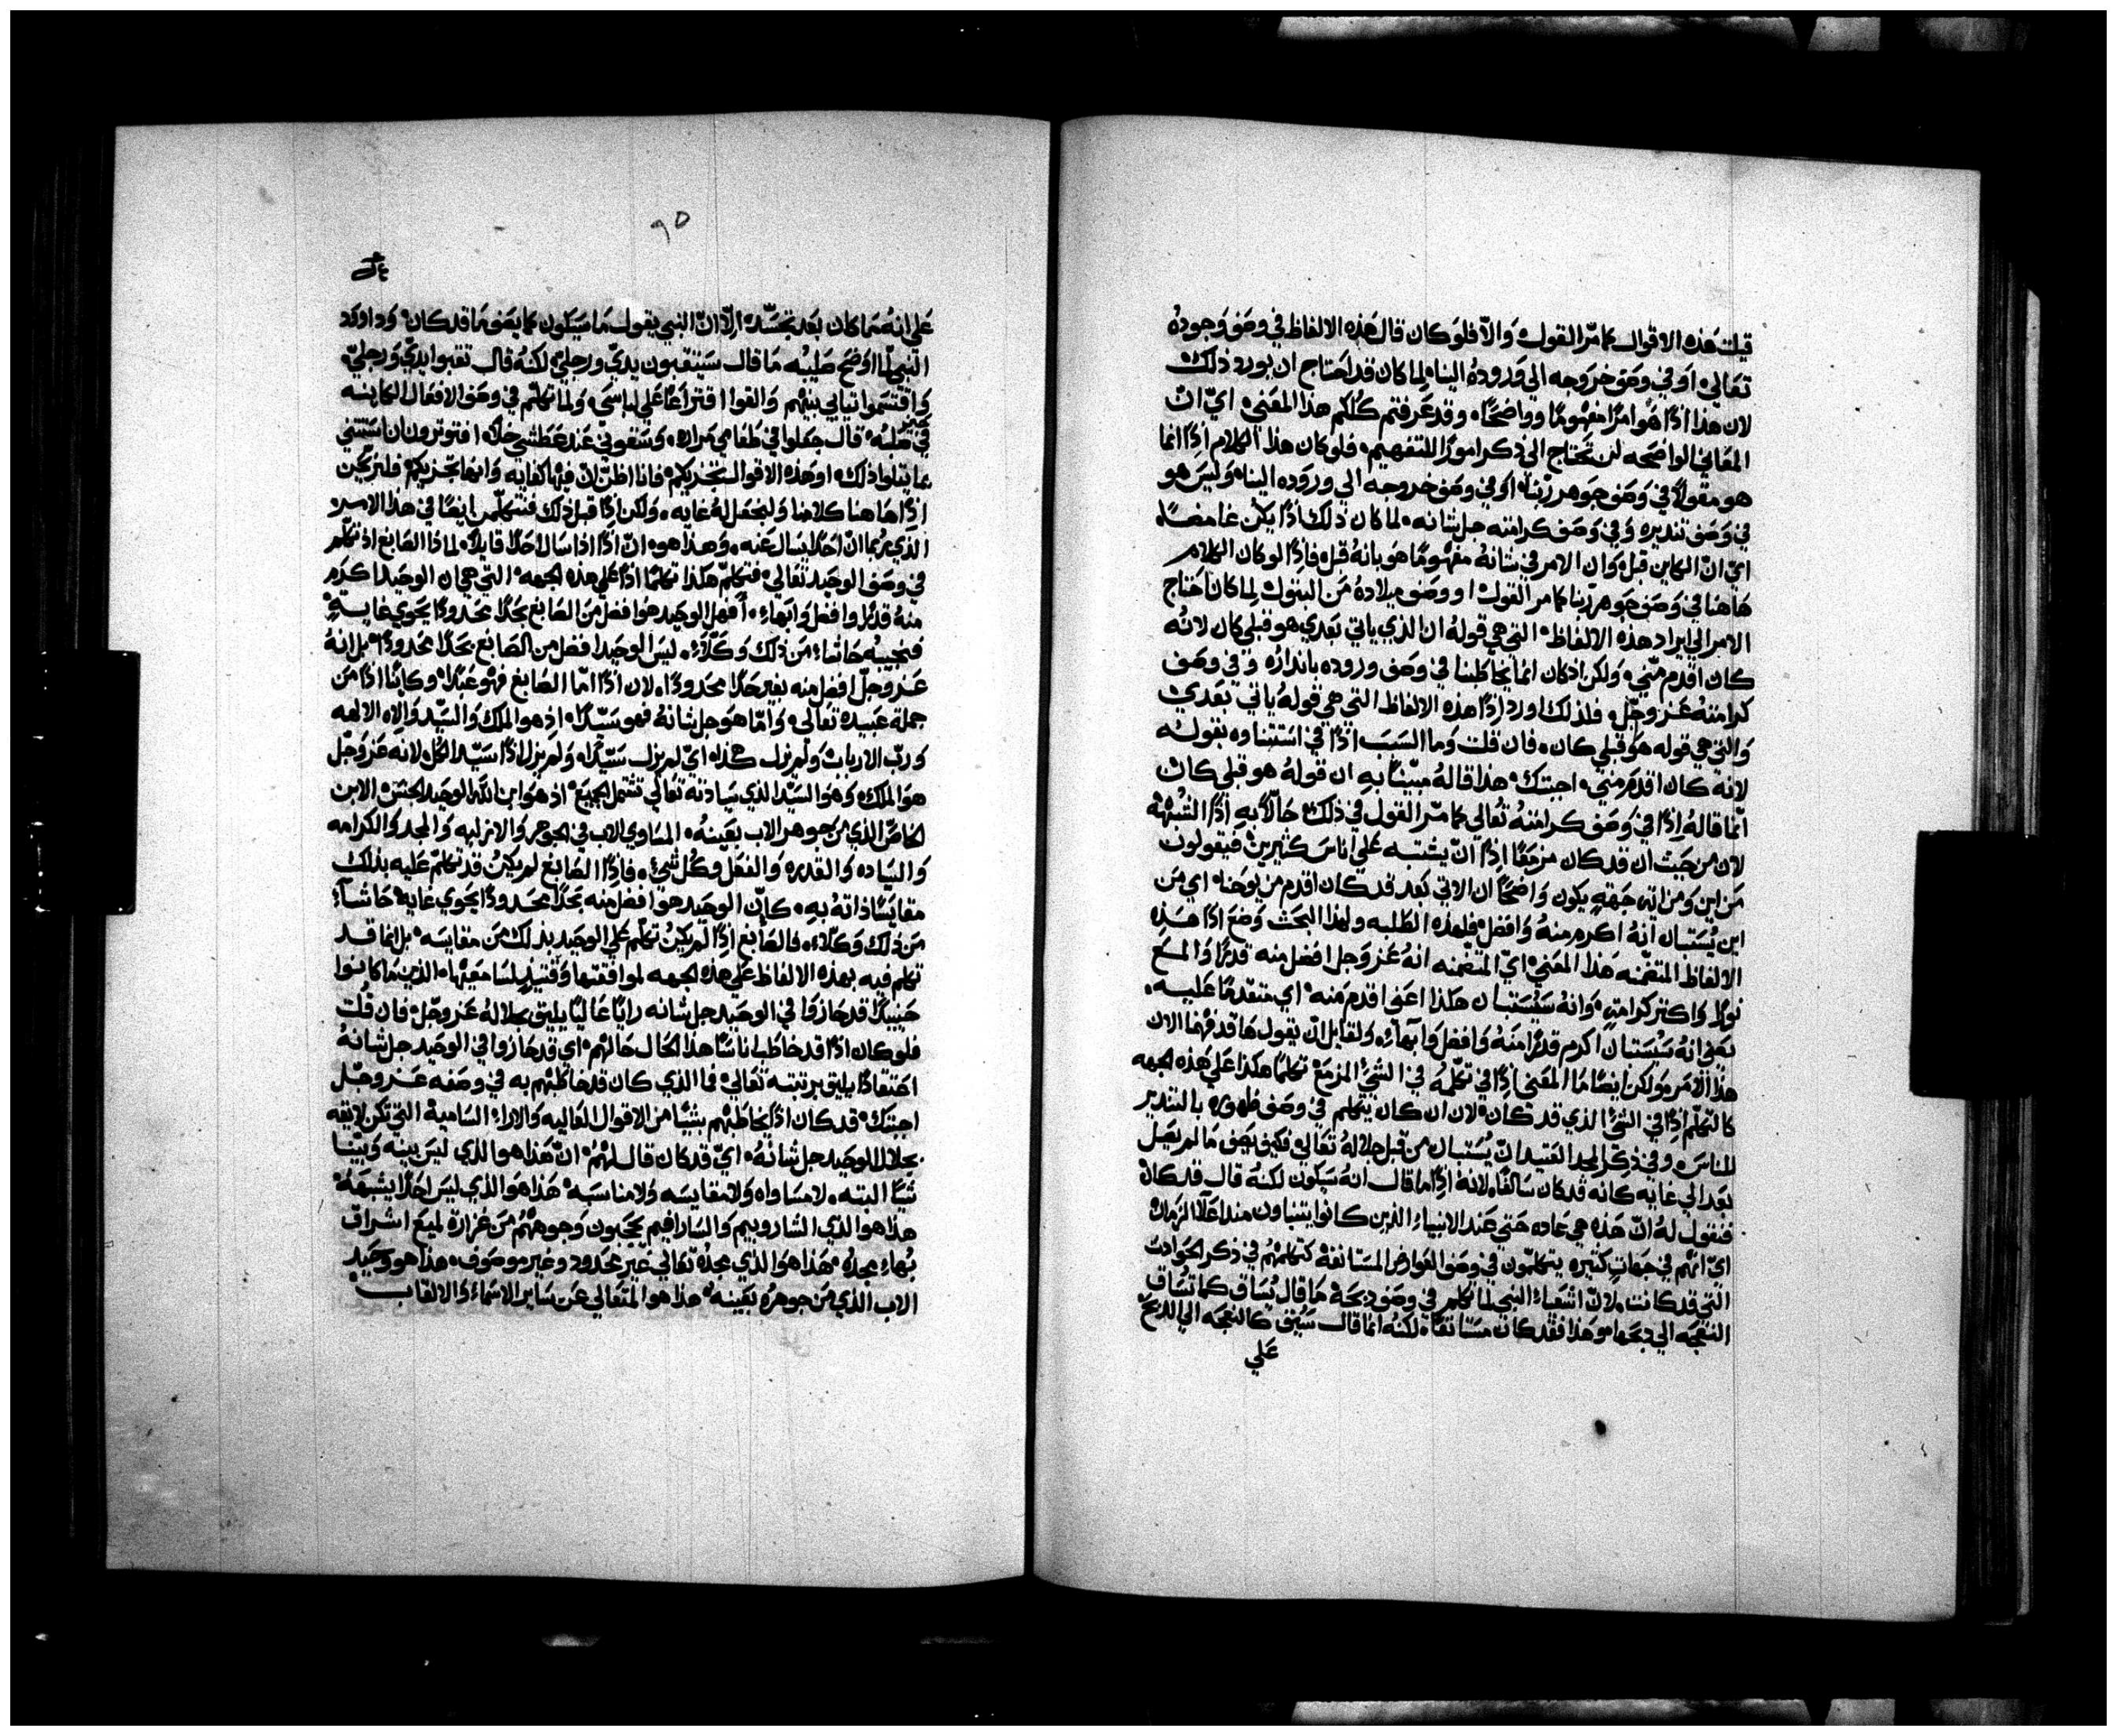 قيلت هذه الاقوال كما مرّ القول والّا فلو كان قال هذه الالفاظ في وصف وجوده
تعالي او في وصف خروجه الي وروده الينا لما كان قد احتاج ان يورد ذلك
لان هذا اذًا هو امرًا مفهومًا وواضحًا وقد عرفتم كلكم هذا المعني ايّ انّ
المعاني الواضحه لن تحتاج الي ذكر امورًا للتفهيم فلو كان هذا الكلام اذًا انما
هو مقولًا في وصف جوهر ربنا او في وصف خروجه الي وروده الينا وليس هو
في وصف تنديره وفي وصف كرامته جل شانه لما كان ذلك اذًا يكن غامضًا
ايّ انّ الكاين قبل وان الامر في شانه مفهومًا هو بانه قبل فاذًا لو كان الكلام
هاهنا في وصف جوهر ربنا كما مر القول او وصف ميلاده من البتول لما كان احتاج
الامر الي ايراد هذه الالفاظ التي هي قوله ان الذي ياتي بعدي هو قبلي كان لانه
كان اقدم منّي ولكن اذ كان انما يخاطبنا في وصف وروده بانداره وفي وصف
كرامته عز وجل فلذلك اورد اذًا هذه الالفاظ التي هي قوله ياتي بعدي
والتي هي قوله هو قبلي كان فان قلت وما السبب اذًا في استتناوه بقوله
لانه كان اقدم مني اجبتك هذا قاله مبيّنًا به ان قوله هو قبلي كان
انّما قاله اذًا في وصف كرامته تعالي كما مرّ القول في ذلك حالًا به اذًا الشبهة
لان من حيث ان قد كان مزمعًا اذًا انّ يشتبه علي اناس كثيرين فيقولون
من اين ومن ايه جهة يكون واضحًا ان الاتي بعد قد كان اقدم من يوحنا اي من
اين يُستبان انه اكرم منه وافضل فلهذه الطلبه ولهذا البحث وضع اذًا هذه
الالفاظ المتضمّنه هذا المعني ايّ المتضمنه انه عز وجل افضل منه قدرًا والمع
نورًا واكتر كرامة وانه سيُستبان هكذا اعني اقدم منه اي متقدمًا عليه
نعني انه سيُستبان اكرم قدرًا منه وافضل وابهاء ولقايل انّ يقول ها قد فهمنا الان
هذا الامر ولكن ايضًا ما المعني اذًا في تكلّمه في الشيّ المزمع تكلمًا هكذا علي هذه الجهه
كالتكلّم اذًا في الشيّ الذي قد كان لان ان كان يتكلم في وصف ظهوره بالتندير
للناس وفي ذكر المجد العتيد انّ يُستبان من قبل جلاله تعالي فكيف يصف ما لم يصل
بعد الي غايه كانه قد كان سالفًا لانه اذًا ما قال انه سيكون لكنه قال قد كان
فنقول له انّ هذه هي عاده حتي عند الانبياء الذين كانوا يتنباون مند اعلا الزمان
ايّ انهم في جهات كتيره يتكلمون في وصف العوارض المستانفة كتكلمهم في ذكر الحوادت
التي قد كانت لانّ اشعياء النبي لما تكلم في وصف ذبحه ما قال يُساق كما تساق
النعجه الي ذبحها وهذا فقد كان مستانفًا لكنه انما قال سُيق كالنعجه الي الذبح
علي
٩٥
علي انه مما كان بعد تجسّده الّا انّ النبي يقول ما سيكون كما يصف ما قد كان وداوود
النبي لمّا اوضح صليبه ما قال سينقبون يديّ ورجليّ لكنه قال تقبوا يديّ ورجليّ
واقتسموا تيابي بينهم والقوا اقتراعًا علي لباسي ولما تكلم في وصف الافعال الكاينه
في صلبه قال جعلوا في طعامي مراره وسقوني عند عطشي خلًا افتوترون ان استتني
بما يتلوا ذلك او هذه الاقوال تجزيكم فانا اظنّ انّ فيها كفايه وانها تجزيكم فلنرتجن
اذًا هاهنا كلامنا ولنجعل له غايه ولكن اذًا قبل ذلك فنتكلّمن ايضًا في هذا الامر
الذي ربما انّ احدًا يسال عنه وهذا هو انّ اذًا اذا سال احدًا قايلًا لماذا الصابغ اذ تكلم
في وصف الوحيد تعالي فتكلّم هكذا تكلمًا اذًا علي هذه الجهه التي هي ان الوحيد اكرم
منه قدرًا وافضل وابهاء أفهل الوحيد هو افضل من الصابغ بحدًا محدودًا يحوي غايةٍ
فنجيبه حاشاء من ذلك وكلّاء ليس الوحيد افضل من الصابغ بحدًا محدودًا بل انه
عز وجلّ افضل منه بغير حدًا محدودًا لان اذًا امّا الصابغ فهو عبدًا وكاينًا اذًا من
جملة عبيده تعالي وامّا هو جل شانه فهو سيّدًا اذ هو الملك والسيّد والاه الالهه
ورب الارباب ولم يزل هكذا اي لم يزل سيّدًا ولم يزل اذًا سيّد الكل لانه عز وجل
هو الملك وهو السيّد الذي سيادته تعالي تشتمل الجميع اذ هو ابن الله الوحيد الجنس الابن
الخاصّ الذي من جوهر الاب بعينه المساوي للاب في الجوهر والازليه والمجد والكرامه
والسياده والقدره والفعل وكل شيء فاذًا الصابغ لم يكن قد تكلم عليه بذلك
مقايسًا ذاته به كانّ الوحيد هو افضل منه بحدًا محدودًا يحوي غايه حاشاء
من ذلك وكلّاء فالصابغ اذًا لم يكن تكلّم علي الوحيد بذلك من مقايسه بل انما قد
تكلم فيه بهذه الالفاظ علي هذه الجهه لموافقتها وقتيذٍ لسامعيها الذين ما كانوا
حينيذٍ قد حازوا في الوحيد جل شانه رايًا عاليًا يليق بجلاله عز وجلّ فان قلت
فلو كان اذًا قد خاطب اناسًا هذا الحال حالهم اي قد حازوا في الوحيد جل شانه
اعتقادًا يليق برتبته تعالي فما الذي كان قد خاطبهم به في وصفه عز وجلّ
اجبتك قد كان اذًا يخاطبهم بشيًا من الاقوال العاليه والاراء السامية التي تكن لايقه
بجلال الوحيد جل شانه ايّ قد كان قال لهُم انّ هذا هو الذي ليس بينه وبيننا
شيًا البته لا مساواه ولا مقايسه ولا مناسبه هذا هو الذي ليس احدًا يشبهه
هذا هو الذي الشاروبيم والسارافيم يحجبون وجوههُم من غزارة لميع اشراق
بهاء مجده هذا هو الذي مجده تعالي غير محدود وغير موصوف هذا هو وحيد
الاب الذي من جوهره بعينه هذا هو المتعالي عن ساير الاسماء والالقاب